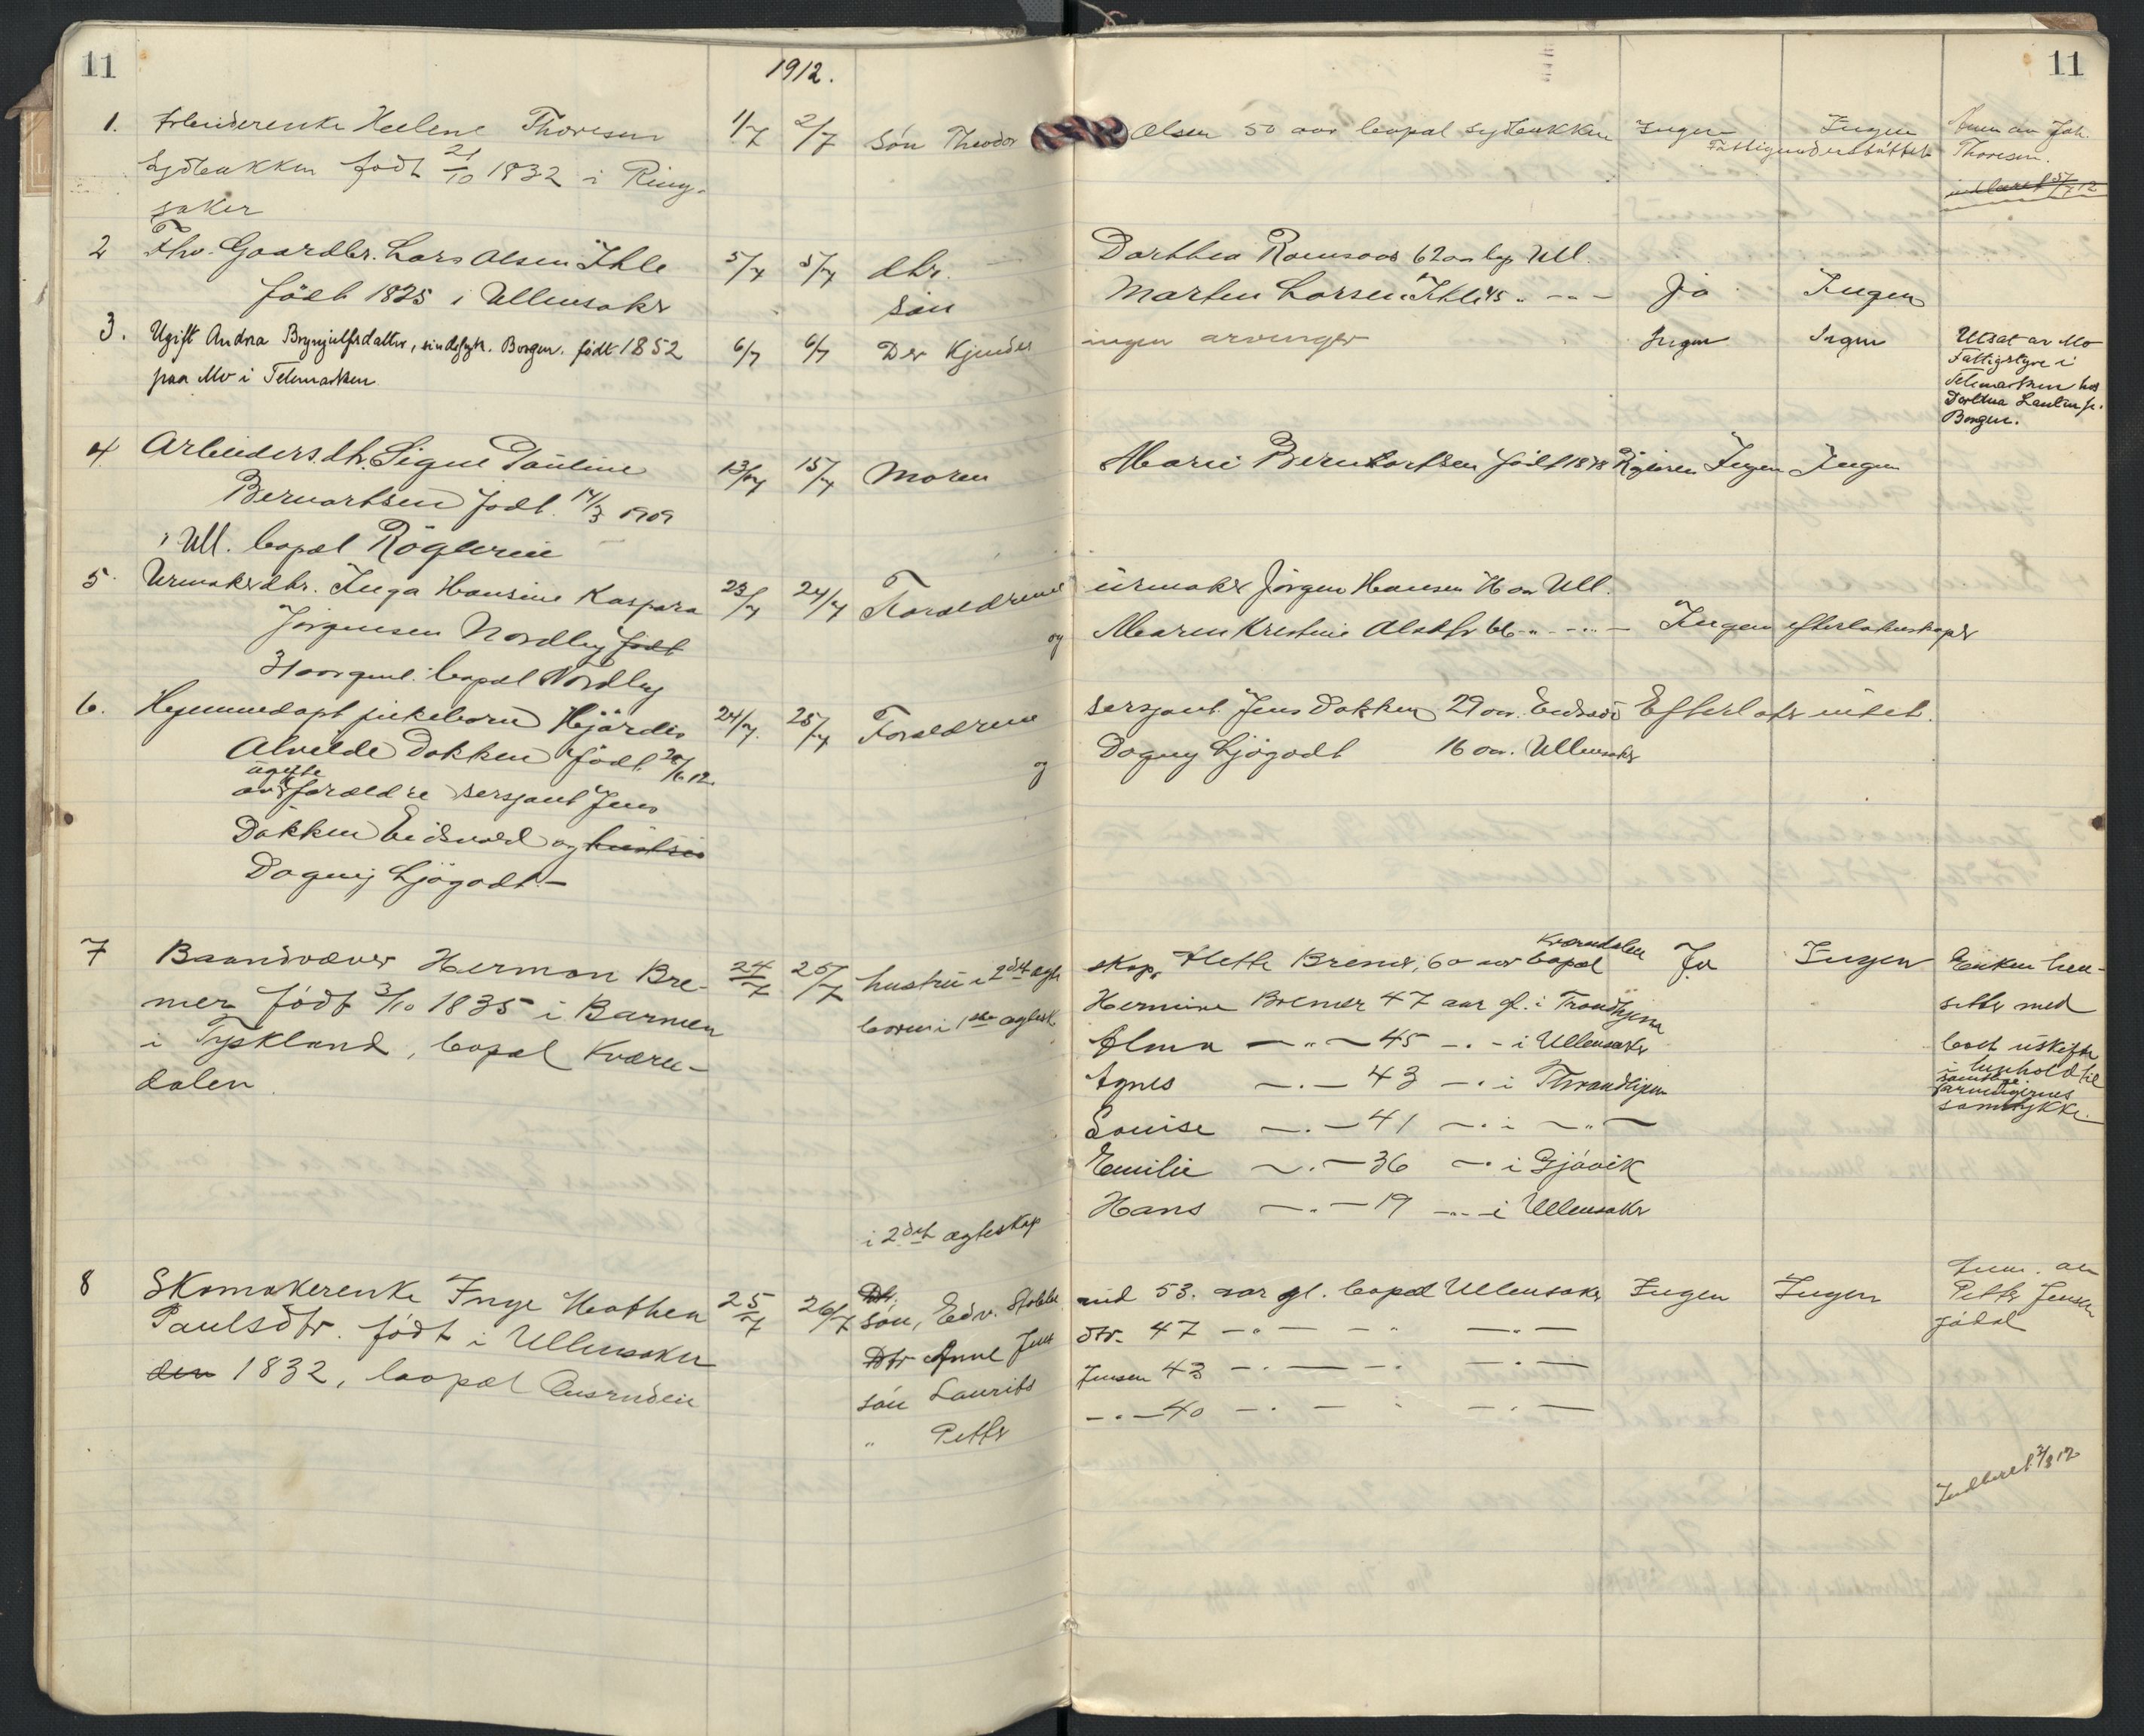 11
1912.
11
1. Arbeiderenke Helene Thoresen 1/7 2/7 Søn Theodor Olsen 50 aar bopal Sydbakken Ingen Ingen Anm av Joh.
Sydbakken født 21/10 1832 i Ring- Fattigunderstøttet Thoresen.
saker
2 Fhv. Gaardbr. Lars Olsen Ihle 5/7 5/7 dtr. Dorthea Ramsaas 62 aar bop Ull.
født 1825 i Ullensaker søn Marten Larsen Ihle 45 " - " - Ja Ingen
3. Ugift Andrea Brynjulfsdatter, sindssyk. Borgen. født 1852 6/7 6/7 Der kjendes ingen arvinger Ingen Ingen Utsat av Mo
paa Mo i Telemarken Fattigstyre i
Telemarken hos
Dorthea
Borgen.
4 Arbeiders.dtr. Signe Pauline 13/7 15/7 Moren Marie Berntsen født 1878 Røgleren Ingen Ingen
Bernartsen født 14/3 1909
i Ull. bopæl Røgleren
5. Urmakerdtr. Inga Hansine Kaspara 23/7 24/7 Foraldrene urmaker Jørgen Hansen 76 aar Ull.
Jørgensen Nordby født og Maren Kristine 66 - " - " - Ingen efterladenskaper
31 aar gml. bopæl Nordby
6. Hjemmedøpt pikebarn Hjørdis 24/7. 25/7 Foraldrene sersjant Jens Dokken 29 aar. Eidsvold Efterlater intet.
Alvilde Dokken født 20/6 12 og Dagny Ljøgodt 16 aar. Ullensaker
ugifte
av foraldre sersjant Jens
Dokken Eidsvold og hustru
Dagny Ljøgodt -
7 Baandvæver Herman Bre- 24/7 25/7 hustru i 2det egte skap, Mette Bremer, 60 aar bopæl Kværndalen Ja Ingen Enken hen-
mer født 3/10 1835 i Barmen born i 1ste egtesk. Hermine Bremer 47 aar gl. i Trondhjem sitter med
i Tyskland, bopæl Kværn- Alma - " - 45 - " - i Ullensaker boet i uskifte
dalen. Agnes - " - 43 - " i Throndhjem i henhold til
Louise - " - 41 - " i - " - samtlige
Emilie - " - 36 - " i Gjøvik arvingernes
Hans - " - 19 - " - i Ullensaker samtykke.
i 2det egteskap
8 Skomakerenke Inge Mathea 25/7 26/7 Dtr. søn, Edv. 53. aar gl. bopæl Ullensaker Ingen Ingen Anm. av
Paulsdtr. født i Ullensaker Dtr Anne Jens dtr. 47 - " - - " - " - Petter Jensen
den 1832, bopæl søn Laurits Jensen 43 - " - - " - " - Jødal
" Petter - " - 40 - " - - " - " -
Indberet 2/8 12